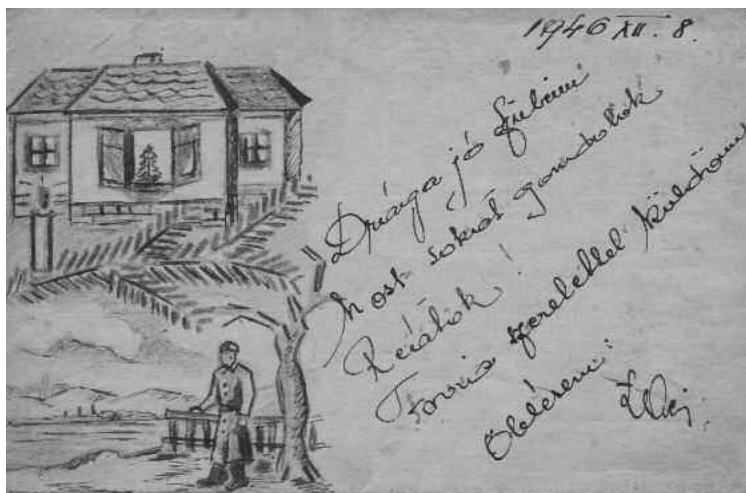 1946 XII. 8.
"Drága jó
Most sokat gondolok
Reátok!
Forró szeretettel küldöm
ölelésem: